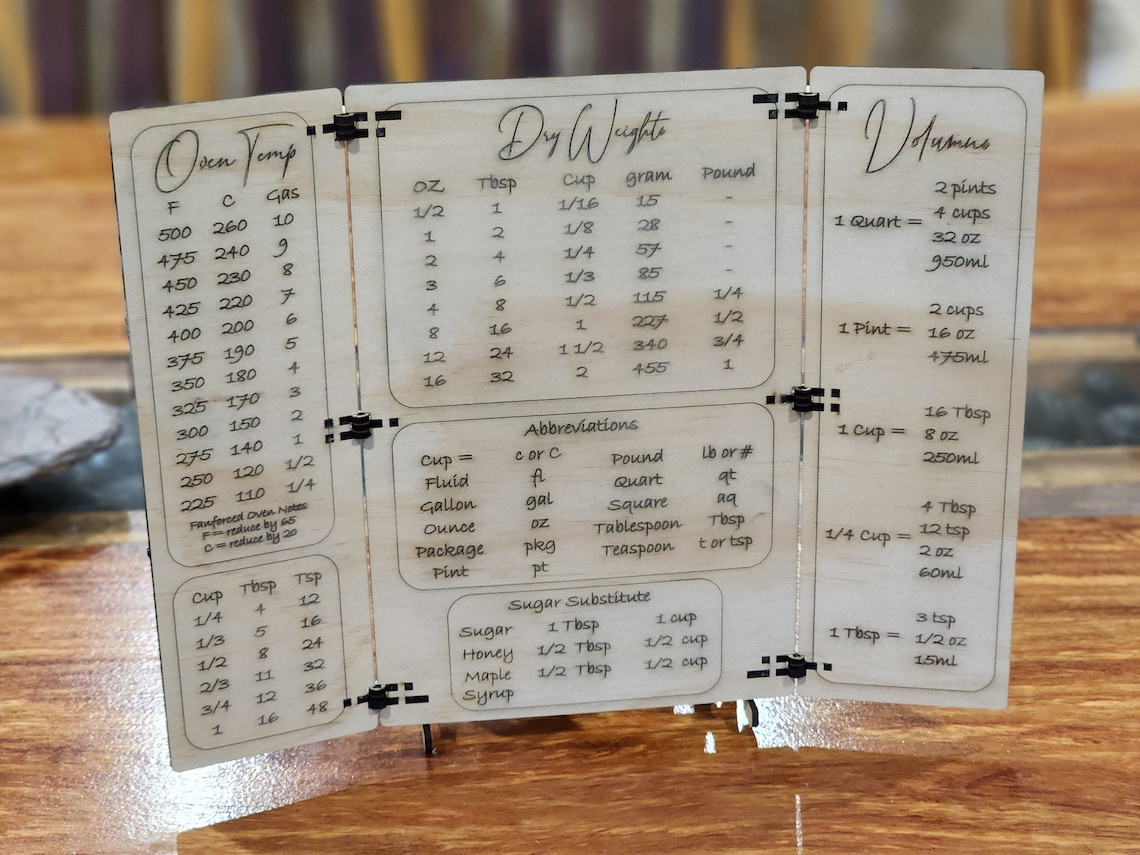 Oven Temp
F C Gas
500 260 10
475 240 9
450 230 8
425 220 7
400 200 6
375 190 5
350 180 4
325 170 3
300 150 2
275 140 1
250 120 1/2
225 110 1/4
Fanforced Oven Notes
F = reduce by 65
C = reduce by 20
Cup Tbsp Tsp
1/4 4 12
1/3 5 16
1/2 8 24
2/3 11 32
3/4 12 36
1 16 48
Dry Weights
OZ Tbsp Cup gram Pound
1/2 1 1/16 15 -
1 2 1/8 28 -
2 4 1/4 57 -
3 6 1/3 85 -
4 8 1/2 115 1/4
8 16 1 227 1/2
12 24 1 1/2 340 3/4
16 32 2 455 1
Abbreviations
Cup = c or C Pound lb or #
Fluid fl Quart qt
Gallon gal Square aq
Ounce oz Tablespoon Tbsp
Package pkg Teaspoon t or tsp
Pint pt
Sugar Substitute
Sugar 1 Tbsp 1 cup
Honey 1/2 Tbsp 1/2 cup
Maple 1/2 Tbsp 1/2 cup
Syrup
Volumns
2 pints
1 Quart = 4 cups
32 oz
950ml
2 cups
1 Pint = 16 oz
475ml
16 Tbsp
1 Cup = 8 oz
250ml
4 Tbsp
1/4 Cup = 12 tsp
2 oz
60ml
3 tsp
1 Tbsp = 1/2 oz
15ml